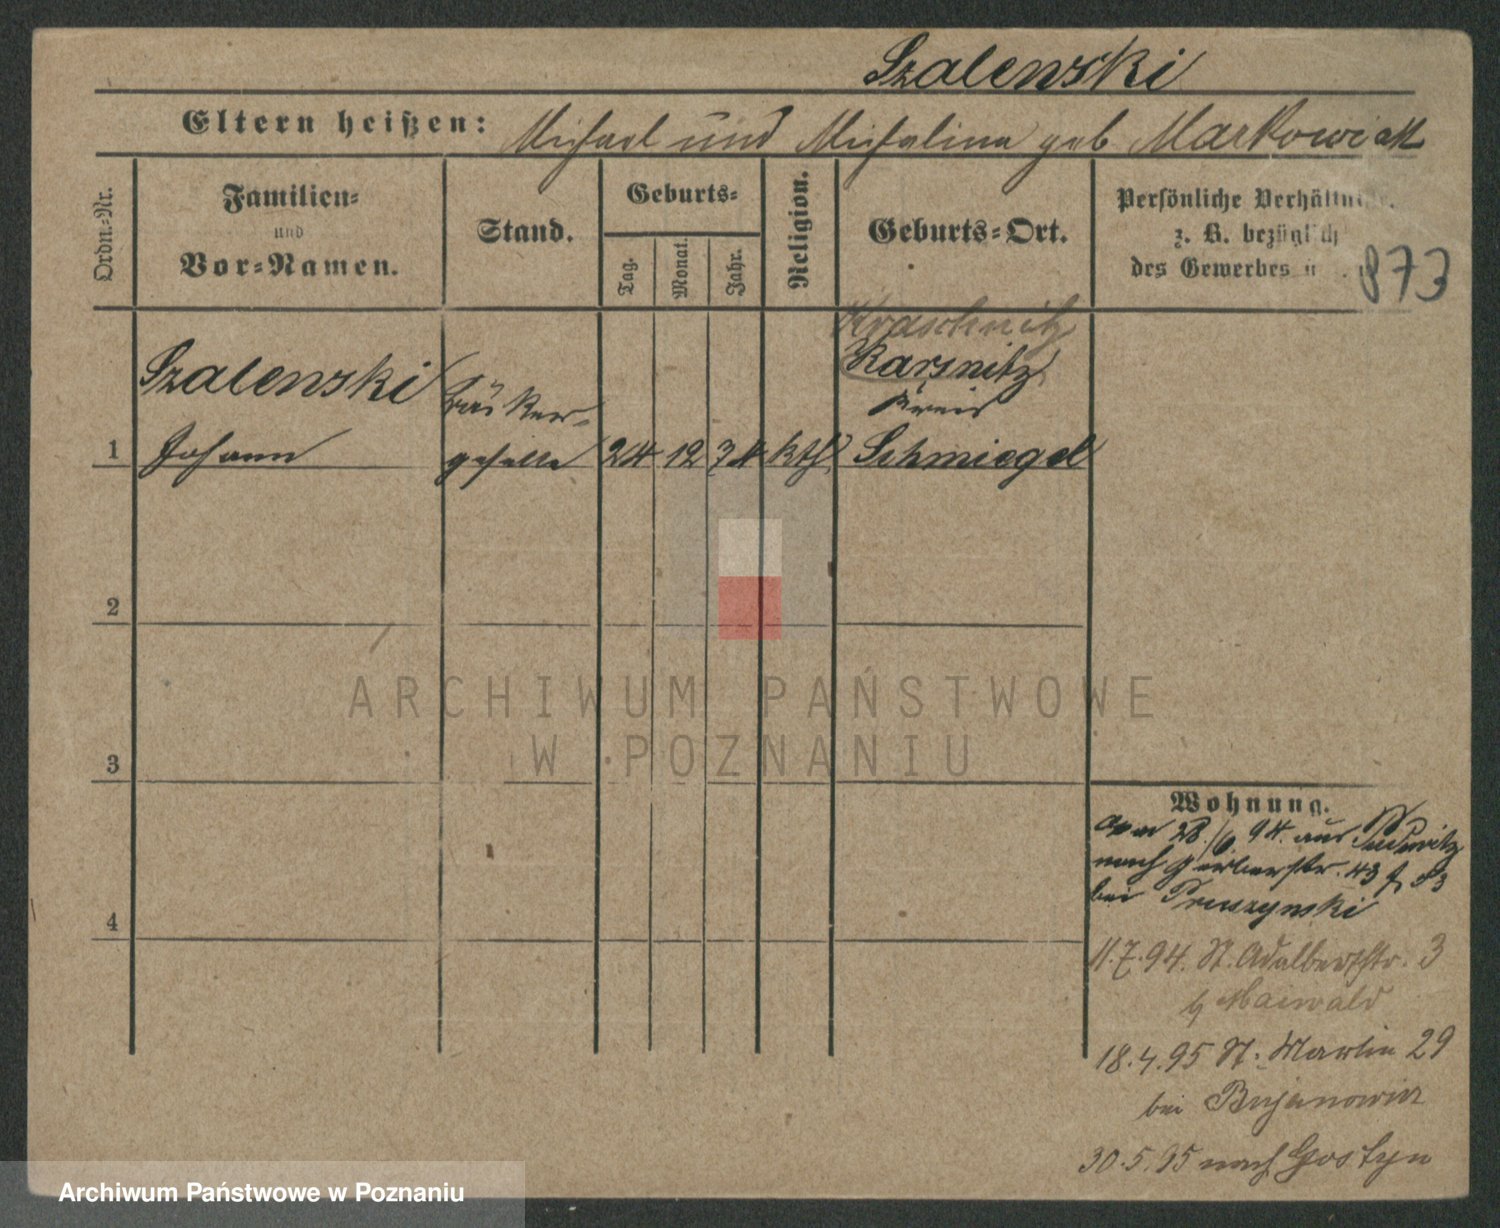 Szalenski
Eltern heißen: Michael und Michalina geb Markowiak
Ordn.-Nr.
Familien-
und
Vor-Namen.
Stand.
Geburts-
Tag.
Monat.
Jahr.
Religion.
Geburts-Ort.
Persönliche
z. B. bezüglich
des Gewerbes
873
Kraschnitz
Szalenski
Bäcker-
Karsnitz
Kreis
1 Johann geselle 24 12 74 kth Schmiegel
2
ARCHIWUM PAŃSTWOWE
W POZNANIU
3
Wohnung.
28/6 94. aus
nach Gerberstr. 43
bei Pruszynski
4
11.7.94. St. Adalbertstr. 3
b Maiwald
18.4.95 St. Martin 29
bei
30.5.95 nach Gostyn
Archiwum Państwowe w Poznaniu